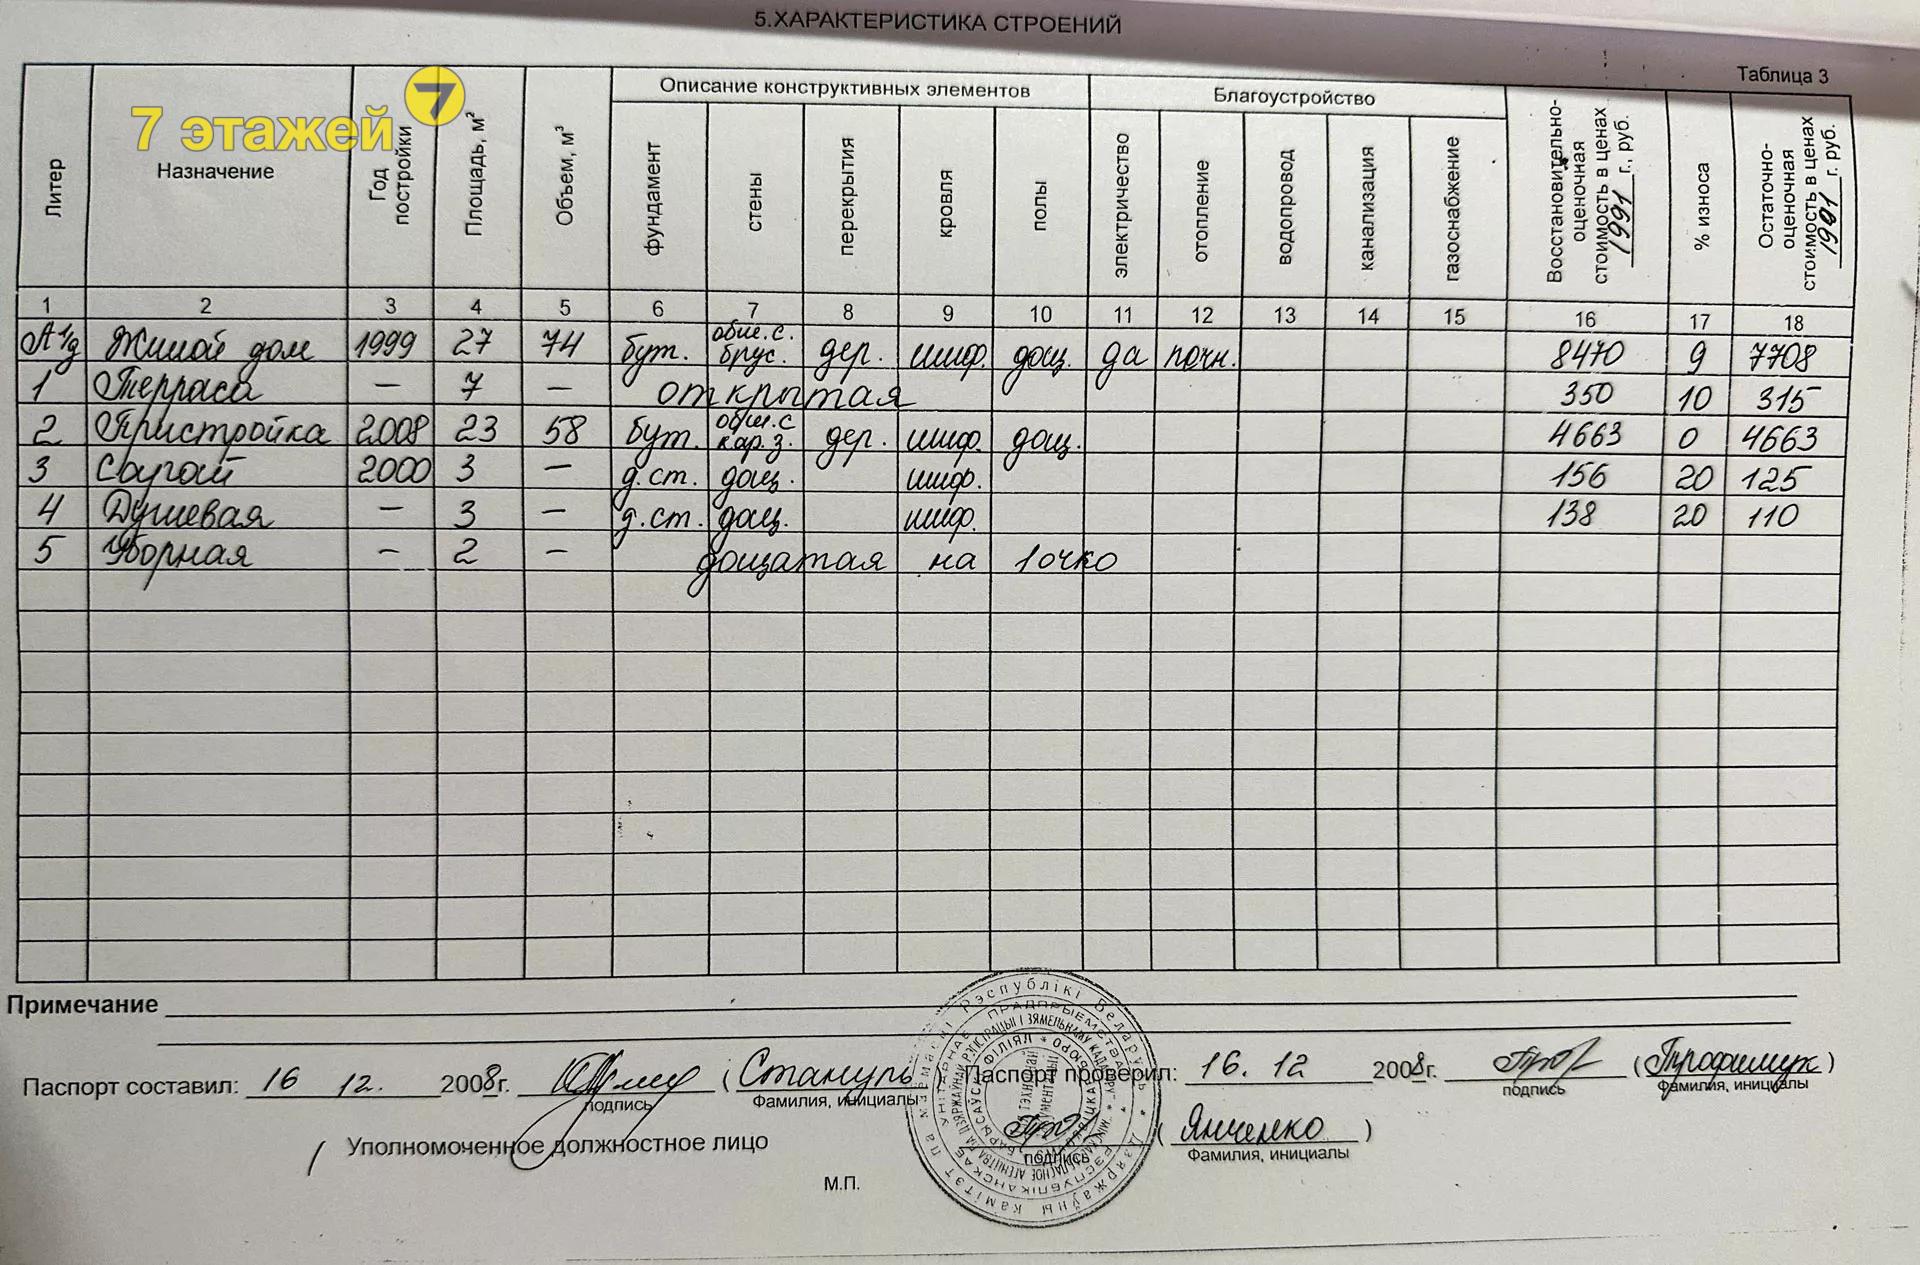 5.ХАРАКТЕРИСТИКА СТРОЕНИЙ
Таблица 3
7 этажей 7
Литер Назначение Год постройки Площадь, м² Объем, м³ Описание конструктивных элементов Благоустройство Восстановительно-оценочная стоимость в ценах 1991 г., руб. % износа Остаточно-оценочная стоимость в ценах 1991 г. руб.
фундамент стены перекрытия кровля полы электричество отопление водопровод канализация газоснабжение
1 2 3 4 5 6 7 8 9 10 11 12 13 14 15 16 17 18
А 1/д Жилой дом 1999 27 74 бут. обш.с. брус. дер. шиф. дощ. да печн. 8470 9 7708
1 Терраса — 7 — открытая 350 10 315
2 Пристройка 2008 23 58 бут. обш.с кар.з. дер. шиф. дощ. 4663 0 4663
3 Сарай 2000 3 — д.ст. дощ. шиф. 156 20 125
4 Душевая — 3 — д.ст. дощ. шиф. 138 20 110
5 Уборная — 2 — дощатая на 1очко
Примечание
Паспорт составил: 16 12. 2008г. (Стануль Паспорт проверил: 16. 12 2008г. (Трофимчук)
подпись Фамилия, инициалы подпись Фамилия, инициалы
Уполномоченное должностное лицо (Янченко)
подпись Фамилия, инициалы
М.П.
Рэспублікі Беларусь